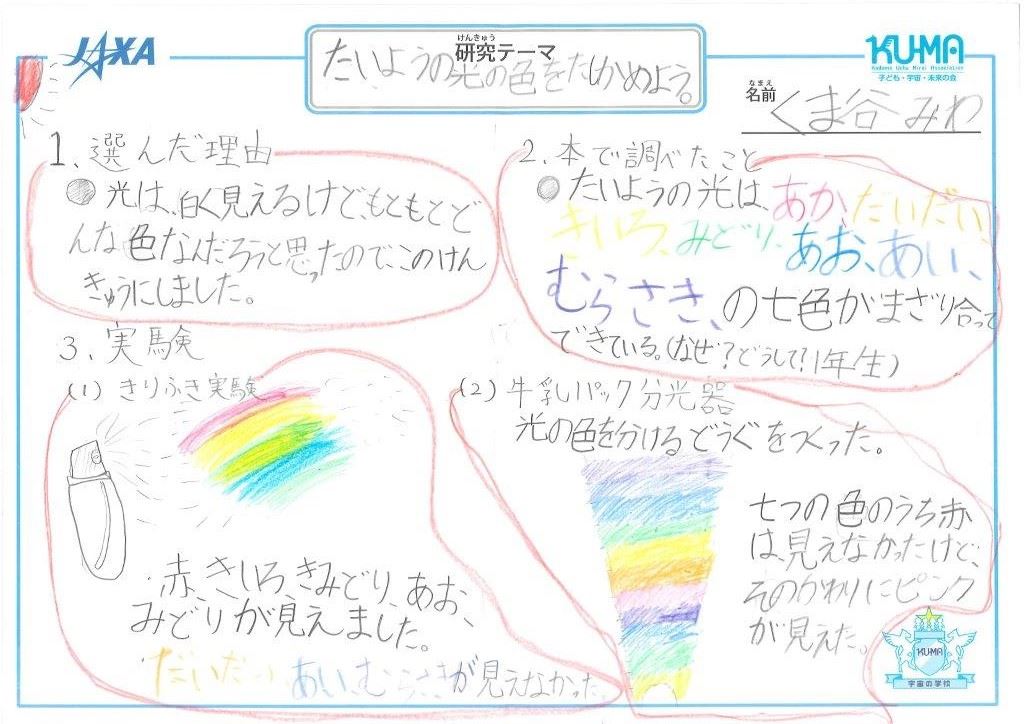 JAXA
けんきゅう
研究テーマ
たいようの光の色をたしかめよう。
KU-MA
Kodomo Uchu Mirai Association
子ども・宇宙・未来の会
なまえ
名前
くま谷みわ
1、選んだ理由
光は、白く見えるけど、もともとど
んな色なんだろうと思ったので、このけん
きゅうにしました。
2、本で調べたこと
たいようの光は、あか、だいだい、
きいろ、みどり、あお、あい、
むらさき、の七色がまざり合って
できている。(なぜ?どうして?1年生)
3、実験
(1)きりふき実験
赤、きいろ、きみどり、あお、
みどりが見えました。
だいだい、あい、むらさきが見えなかった。
(2)牛乳パック分光器
光の色を分けるどうぐをつくった。
七つの色のうち赤
は見えなかったけど、
そのかわりにピンク
が見えた。
KU-MA
宇宙の学校